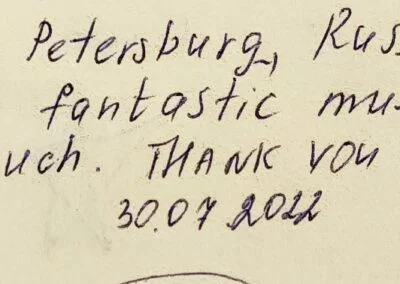 Petersburg, Rus
fantastic mus
uch. THANK YOU
30.07.2022